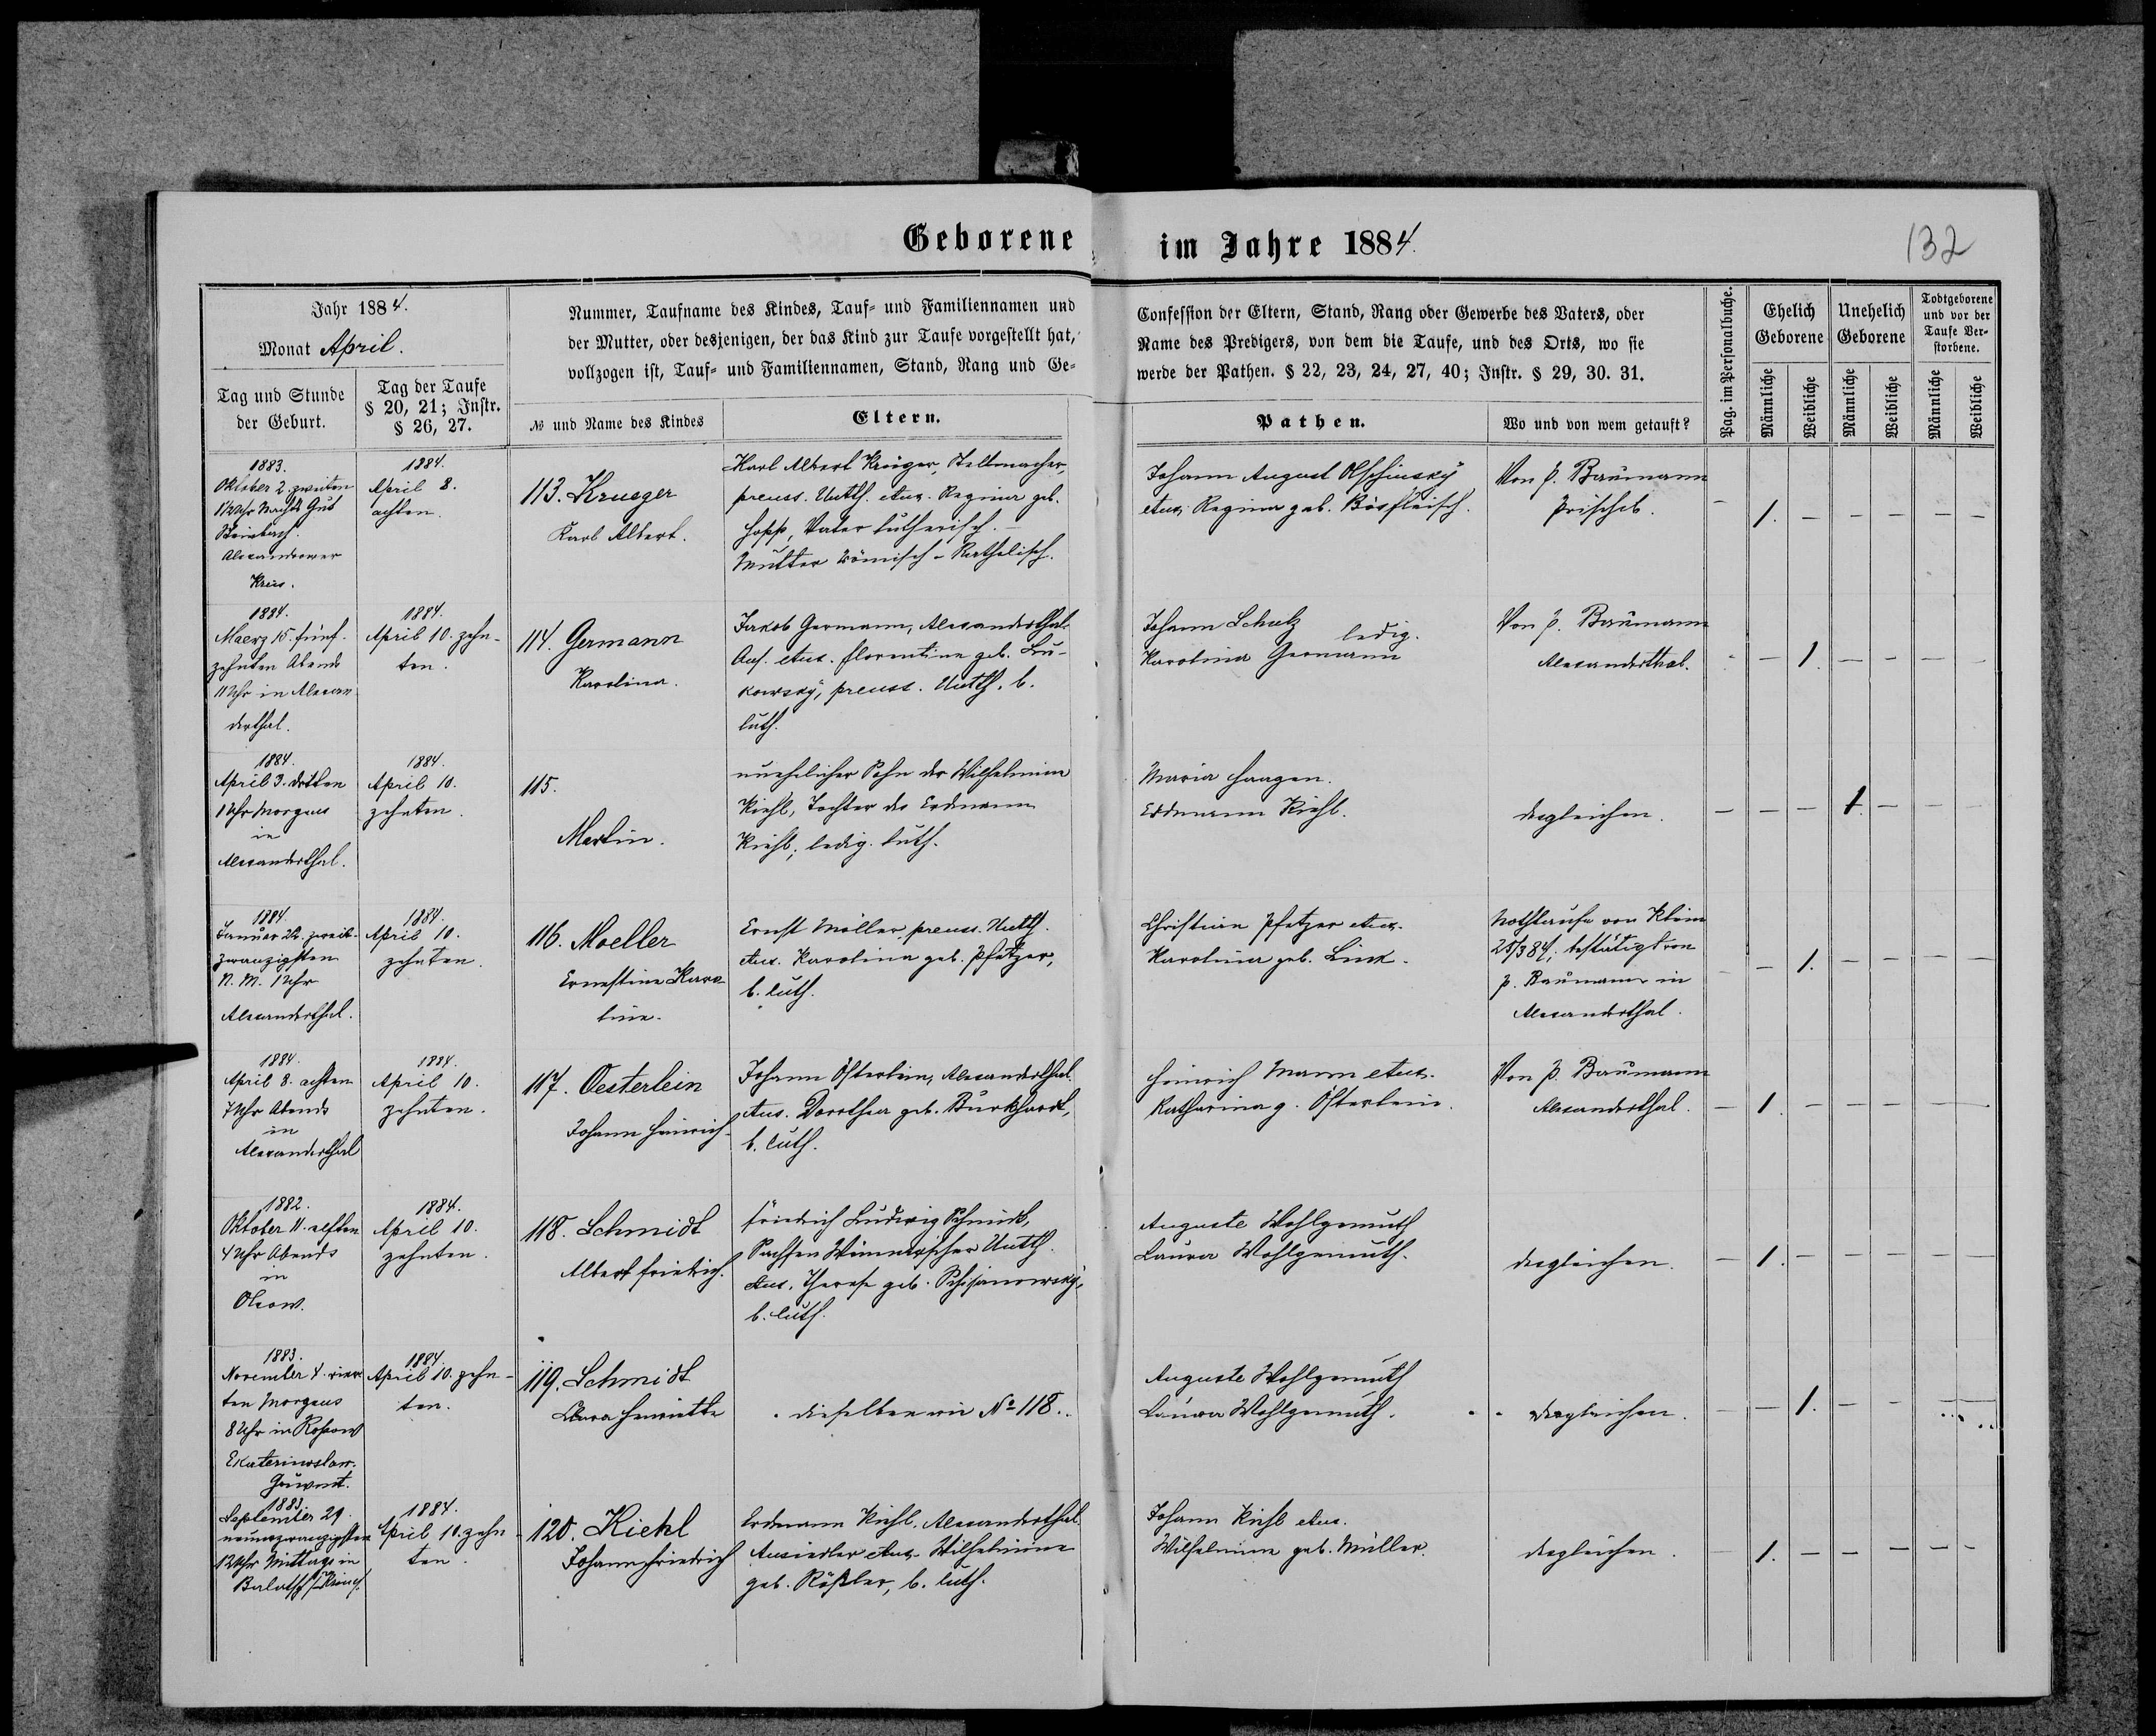 Geborene im Jahre 1884.
132
Jahr 1884.
Monat April.
Tag und Stunde
der Geburt.
Tag der Taufe
§ 20, 21; Instr.
§ 26, 27.
Nummer, Taufname des Kindes, Tauf- und Familiennamen und
der Mutter, oder desjenigen, der das Kind zur Taufe vorgestellt hat,
vollzogen ist, Tauf- und Familiennamen, Stand, Rang und Ge-
№ und Name des Kindes
Eltern.
Confession der Eltern, Stand, Rang oder Gewerbe des Vaters, oder
Name des Predigers, von dem die Taufe, und des Orts, wo sie
werde der Pathen. § 22, 23, 24, 27, 40; Instr. § 29, 30. 31.
Pathen.
Wo und von wem getauft?
Pag. im Personalbuche.
Ehelich
Geborene
Unehelich
Geborene
Todtgeborene
und vor der
Taufe Ver-
storbene.
Männliche
Weibliche
Männliche
Weibliche
Männliche
Weibliche
1883.
Oktober 2. zweiten
Uhr Nachts Gut
Steinbach.
Alexandrower
Kreis.
1884.
April 8.
achten.
113. Krueger
Karl Albert.
Karl Albert Krüger, Stellmacher,
preuss. Untth. etux. Regina geb.
Hopp, Vater lutherisch. –
Mutter römisch-Katholisch.
Johann August Olschinsky
etux. Regina geb. Bösfleisch.
Von P. Baumann
Prischib.
– 1. – – – – –
1884.
Maerz 15. fünf-
zehnten Abends
11 Uhr in Alexan
derthal.
1884.
April 10. zehn-
ten.
114. Germann
Karolina.
Jakob Germann, Alexanderthal
Ans. etux. Florentine geb. Lu-
kowsky, preuss. Untth. b.
luth.
Johann Schulz
ledig.
Karolina Germann
Von P. Baumann
Alexanderthal.
– – 1. – – – –
1884.
April 3. dritten
1 Uhr Morgens
in
Alexanderthal.
1884.
April 10.
zehnten.
115.
Martin.
unehelicher Sohn der Wilhelmine
Kiehl, Tochter des Erdmann
Kiehl, ledig. luth.
Maria Haagen.
Erdmann Kiehl.
desgleichen.
– – – 1. – – –
1884.
Januar 22. zweit-
zwanzigsten
N. M. 1 Uhr
Alexanderthal.
1884.
April 10.
zehnten.
116. Moeller
Ernestine Karo-
line.
Ernst Möller, preuss. Untth.
etux. Karolina geb. Pfetzer,
b. luth.
Christian Pfetzer etux.
Karolina geb. Link.
Nothtaufe von Klein
25/3 84, bestätigt von
P. Baumann in
Alexanderthal.
– – 1. – – – –
1884.
April 8. achten
7 Uhr Abends
in
Alexanderthal
1884.
April 10.
zehnten.
117. Oesterlein
Johann Heinrich
Johann Österlein, Alexanderthal.
etux. Dorothea geb. Burkhardt,
b. luth.
Heinrich Mann etux.
Katharina g. Österlein.
Von P. Baumann
Alexanderthal.
– 1. – – – – –
1882.
Oktober 11. elften
4 Uhr Abends
in
Olsow.
1884.
April 10.
zehnten.
118. Schmidt
Albert Friedrich.
Friedrich Ludwig Schmidt,
Sachsen Untth.
etux. Therese geb.
b. luth.
Auguste Wohlgemuth
Laura Wohlgemuth.
desgleichen.
– 1. – – – – –
1883.
November 4. vier
ten Morgens
8 Uhr in
Ekaterinoslaw.
Gouvernt.
1884.
April 10. zehn-
ten.
119. Schmidt
Clara Henriette
dieselben wie № 118.
Auguste Wohlgemuth
Laura Wohlgemuth.
desgleichen.
– – 1. – – – –
1883.
September 29.
neunzwanzigsten
12 Uhr Mittags in
1884.
April 10. zehn
ten.
120. Kiehl
Johann Friedrich
Erdmann Kiehl, Alexanderthal.
Ansiedler etux. Wilhelmine
geb. Rößler, b. luth.
Johann Kiehl etux.
Wilhelmine geb. Müller.
desgleichen.
– 1. – – – – –